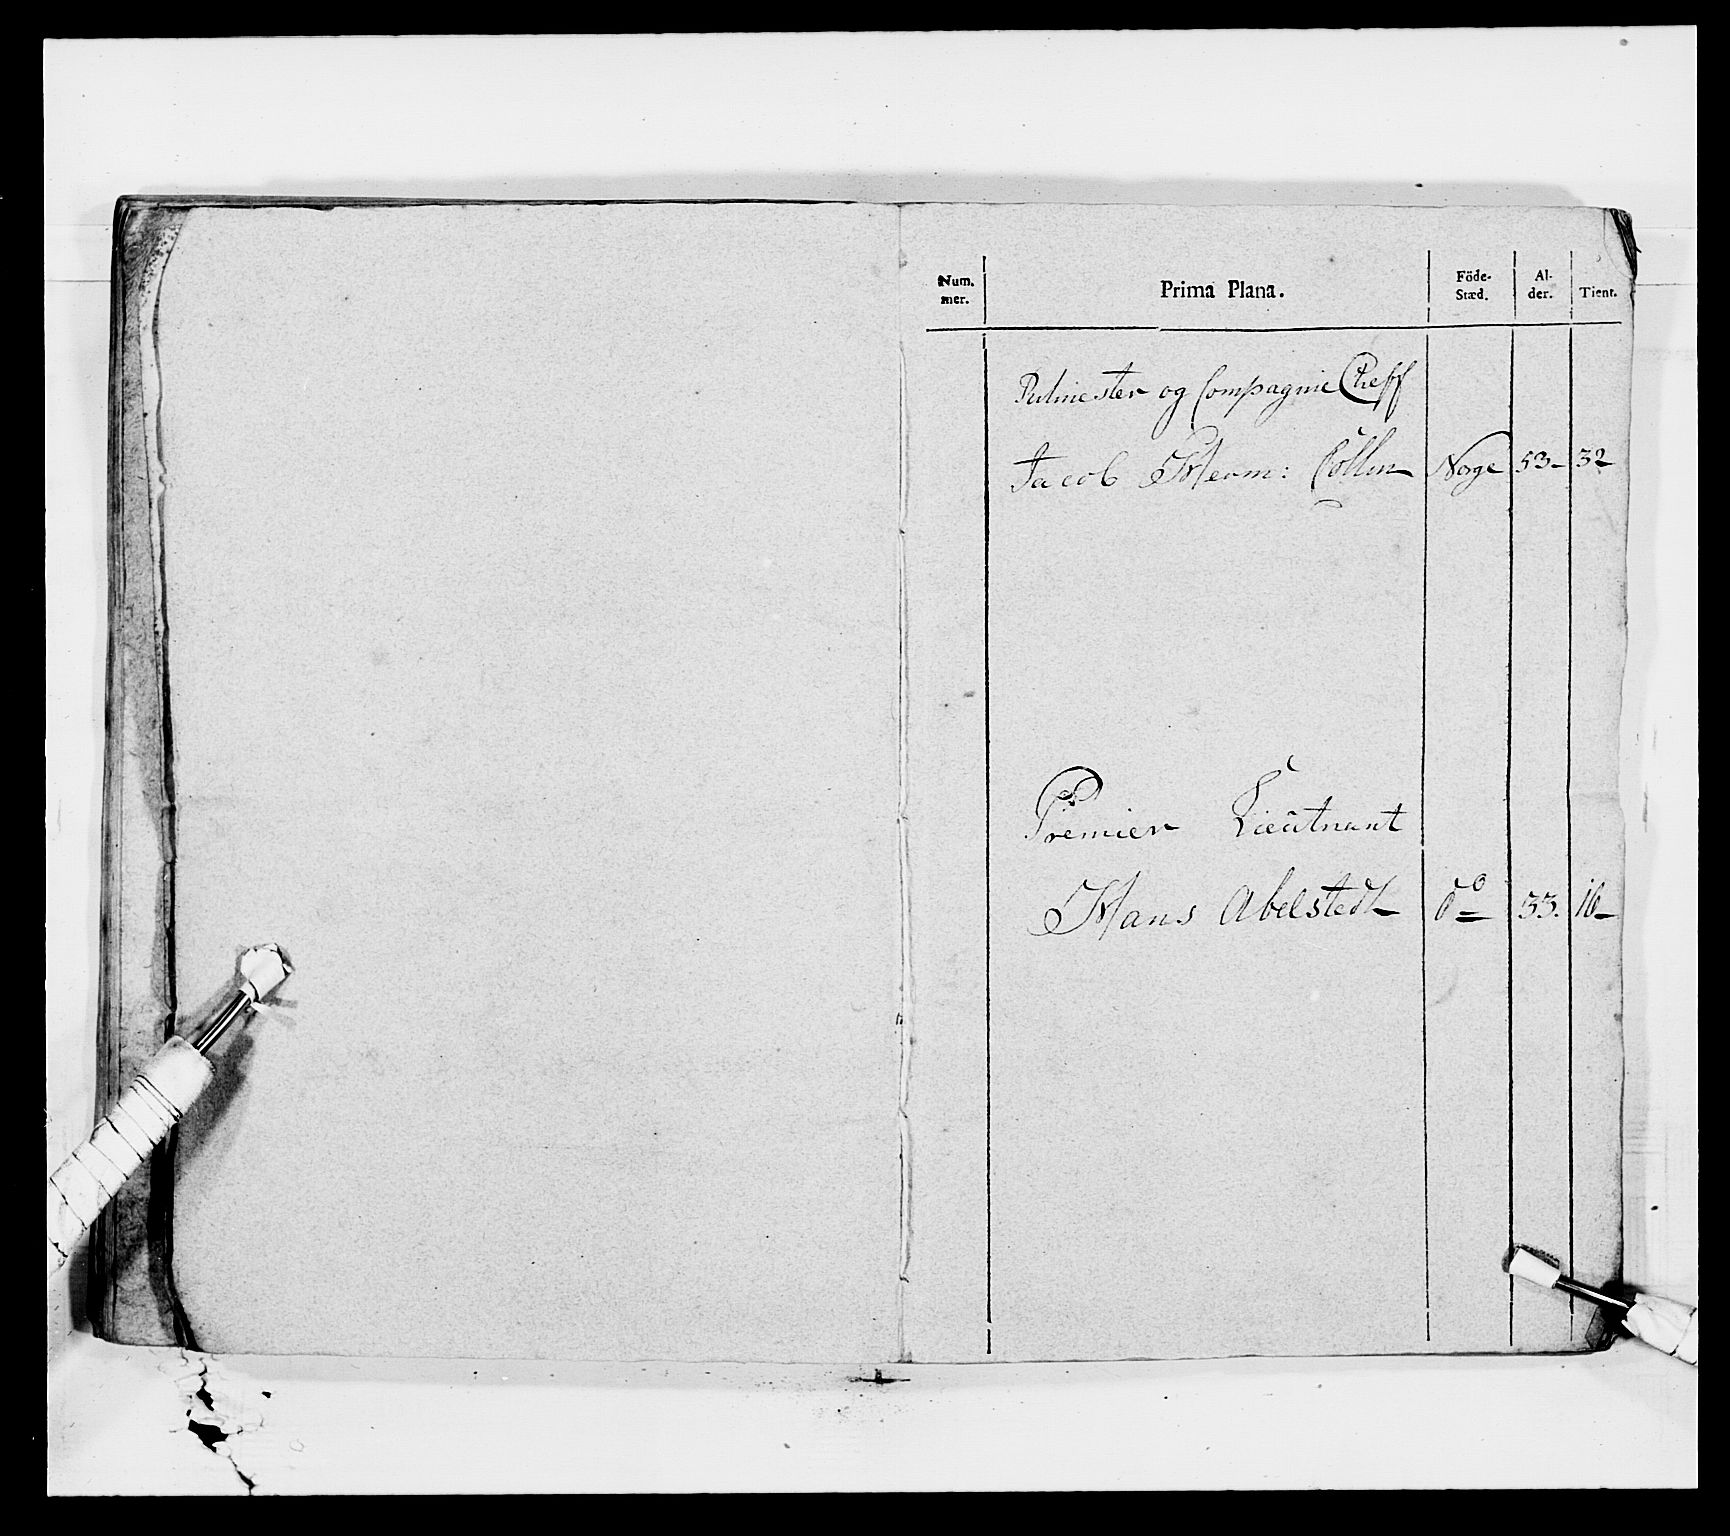 Num-
mer.
Prima Plana.
Föde-
Stæd.
Al-
der.
Tient.
Ritmester og Compagnie Cheff
Jacob Herm: Collin Norge 53 32
Premier Lieutnant
Hans Abelstedt do 33. 16